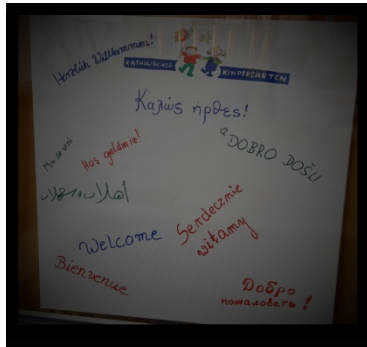 Herzlich Willkommen!
KATHOLISCHER KINDERGARTEN
Καλώς ήρθες!
DOBRO DOŠLI
Hoş geldiniz!
أهلا وسهلا
Serdecznie
witamy
Welcome
Bienvenue
Добро
пожаловать!